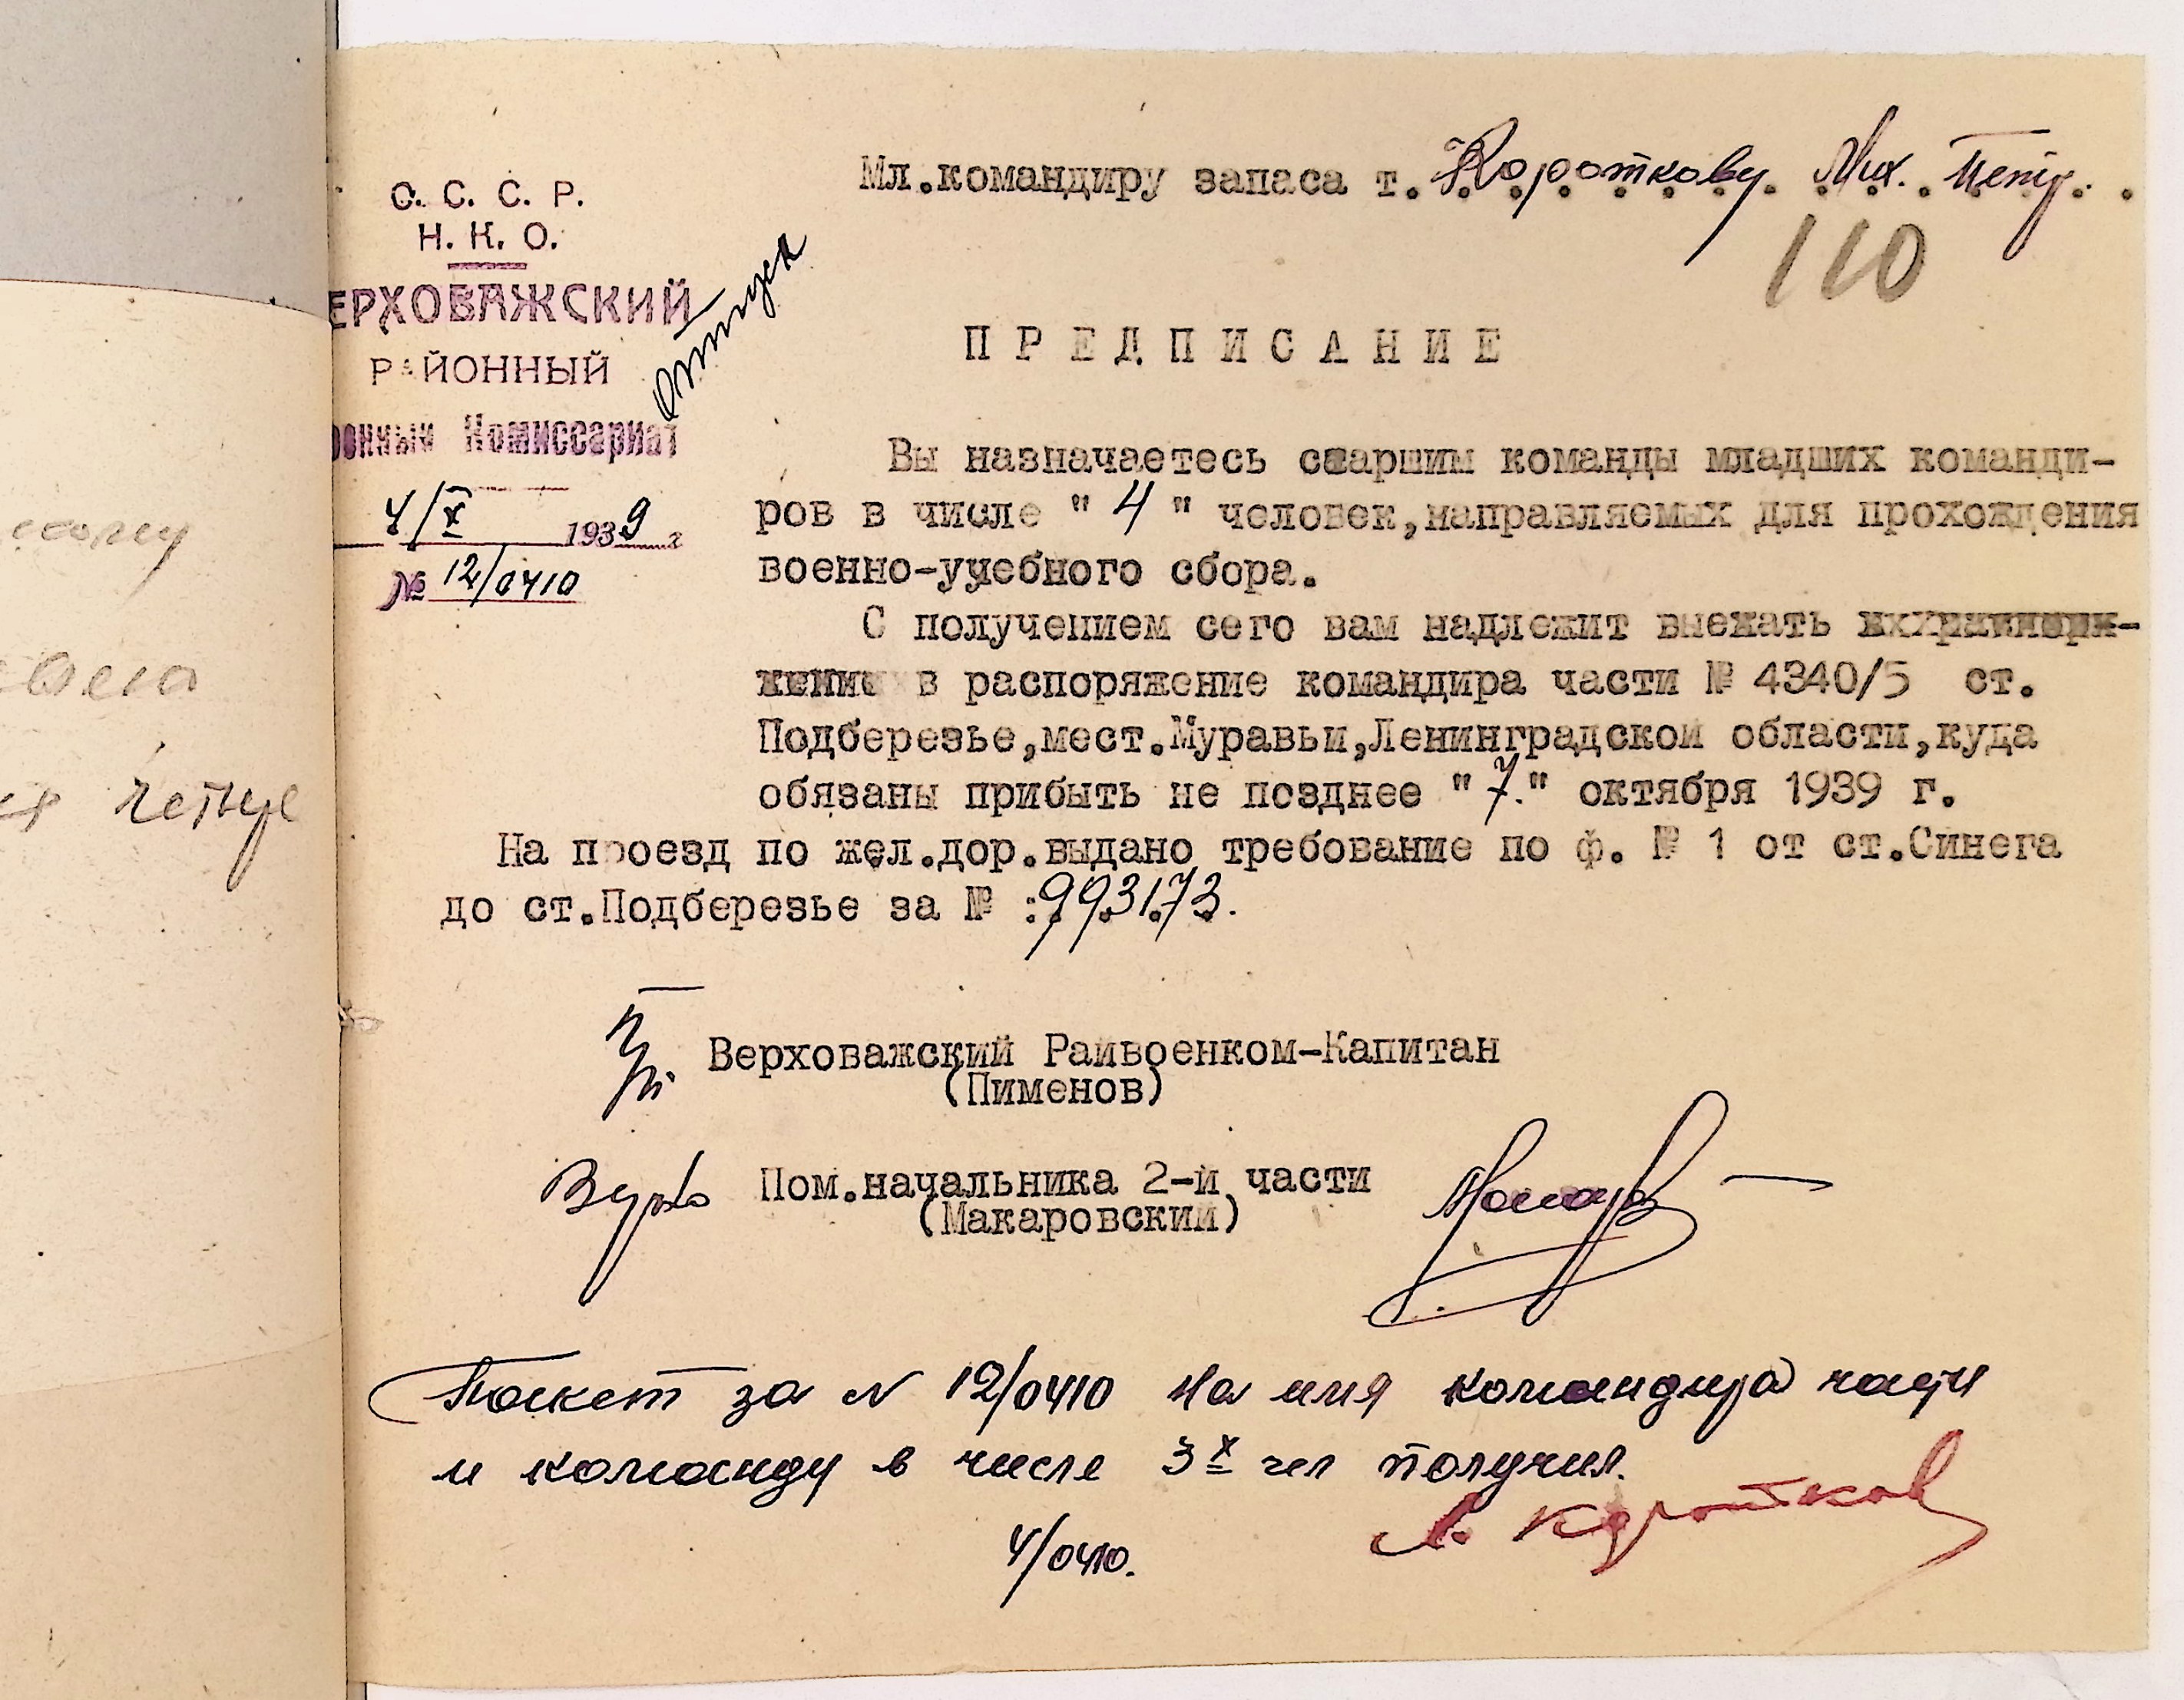 С. С. С. Р.
Н. К. О.
ЕРХОВАЖСКИЙ
РАЙОННЫЙ
оенный Комиссариат
4/X 1939 г
№ 12/0410
отпуск
Мл.командиру запаса т. Короткову. Мих. Петр.
110
ПРЕДПИСАНИЕ
Вы назначаетесь старшим команды младших команди-
ров в числе "4" человек,направляемых для прохождения
военно-учебного сбора.
С получением сего вам надлежит выехать
в распоряжение командира части № 4340/5 ст.
Подберезье,мест.Муравьи,Ленинградской области,куда
обязаны прибыть не позднее "7." октября 1939 г.
На проезд по жел.дор.выдано требование по ф. № 1 от ст.Синега
до ст.Подберезье за № :993173.
Верховажский Райвоенком-Капитан
(Пименов)
Пом.начальника 2-й части
(Макаровский)
Пакет за N 12/0410 на имя командира части
и команду в числе 3х чел получил.
М. Коротков
4/0410.